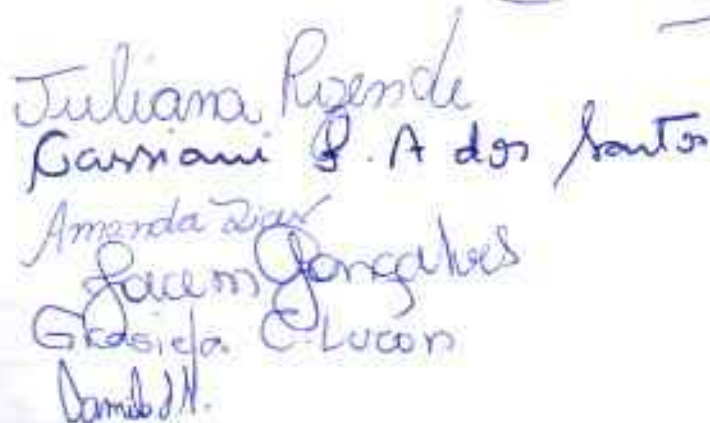 Juliana Rosende
Cassiani P. A dos Santos
Amanda Dias
Jacem Gonçalves
Grasiela C. Lucon